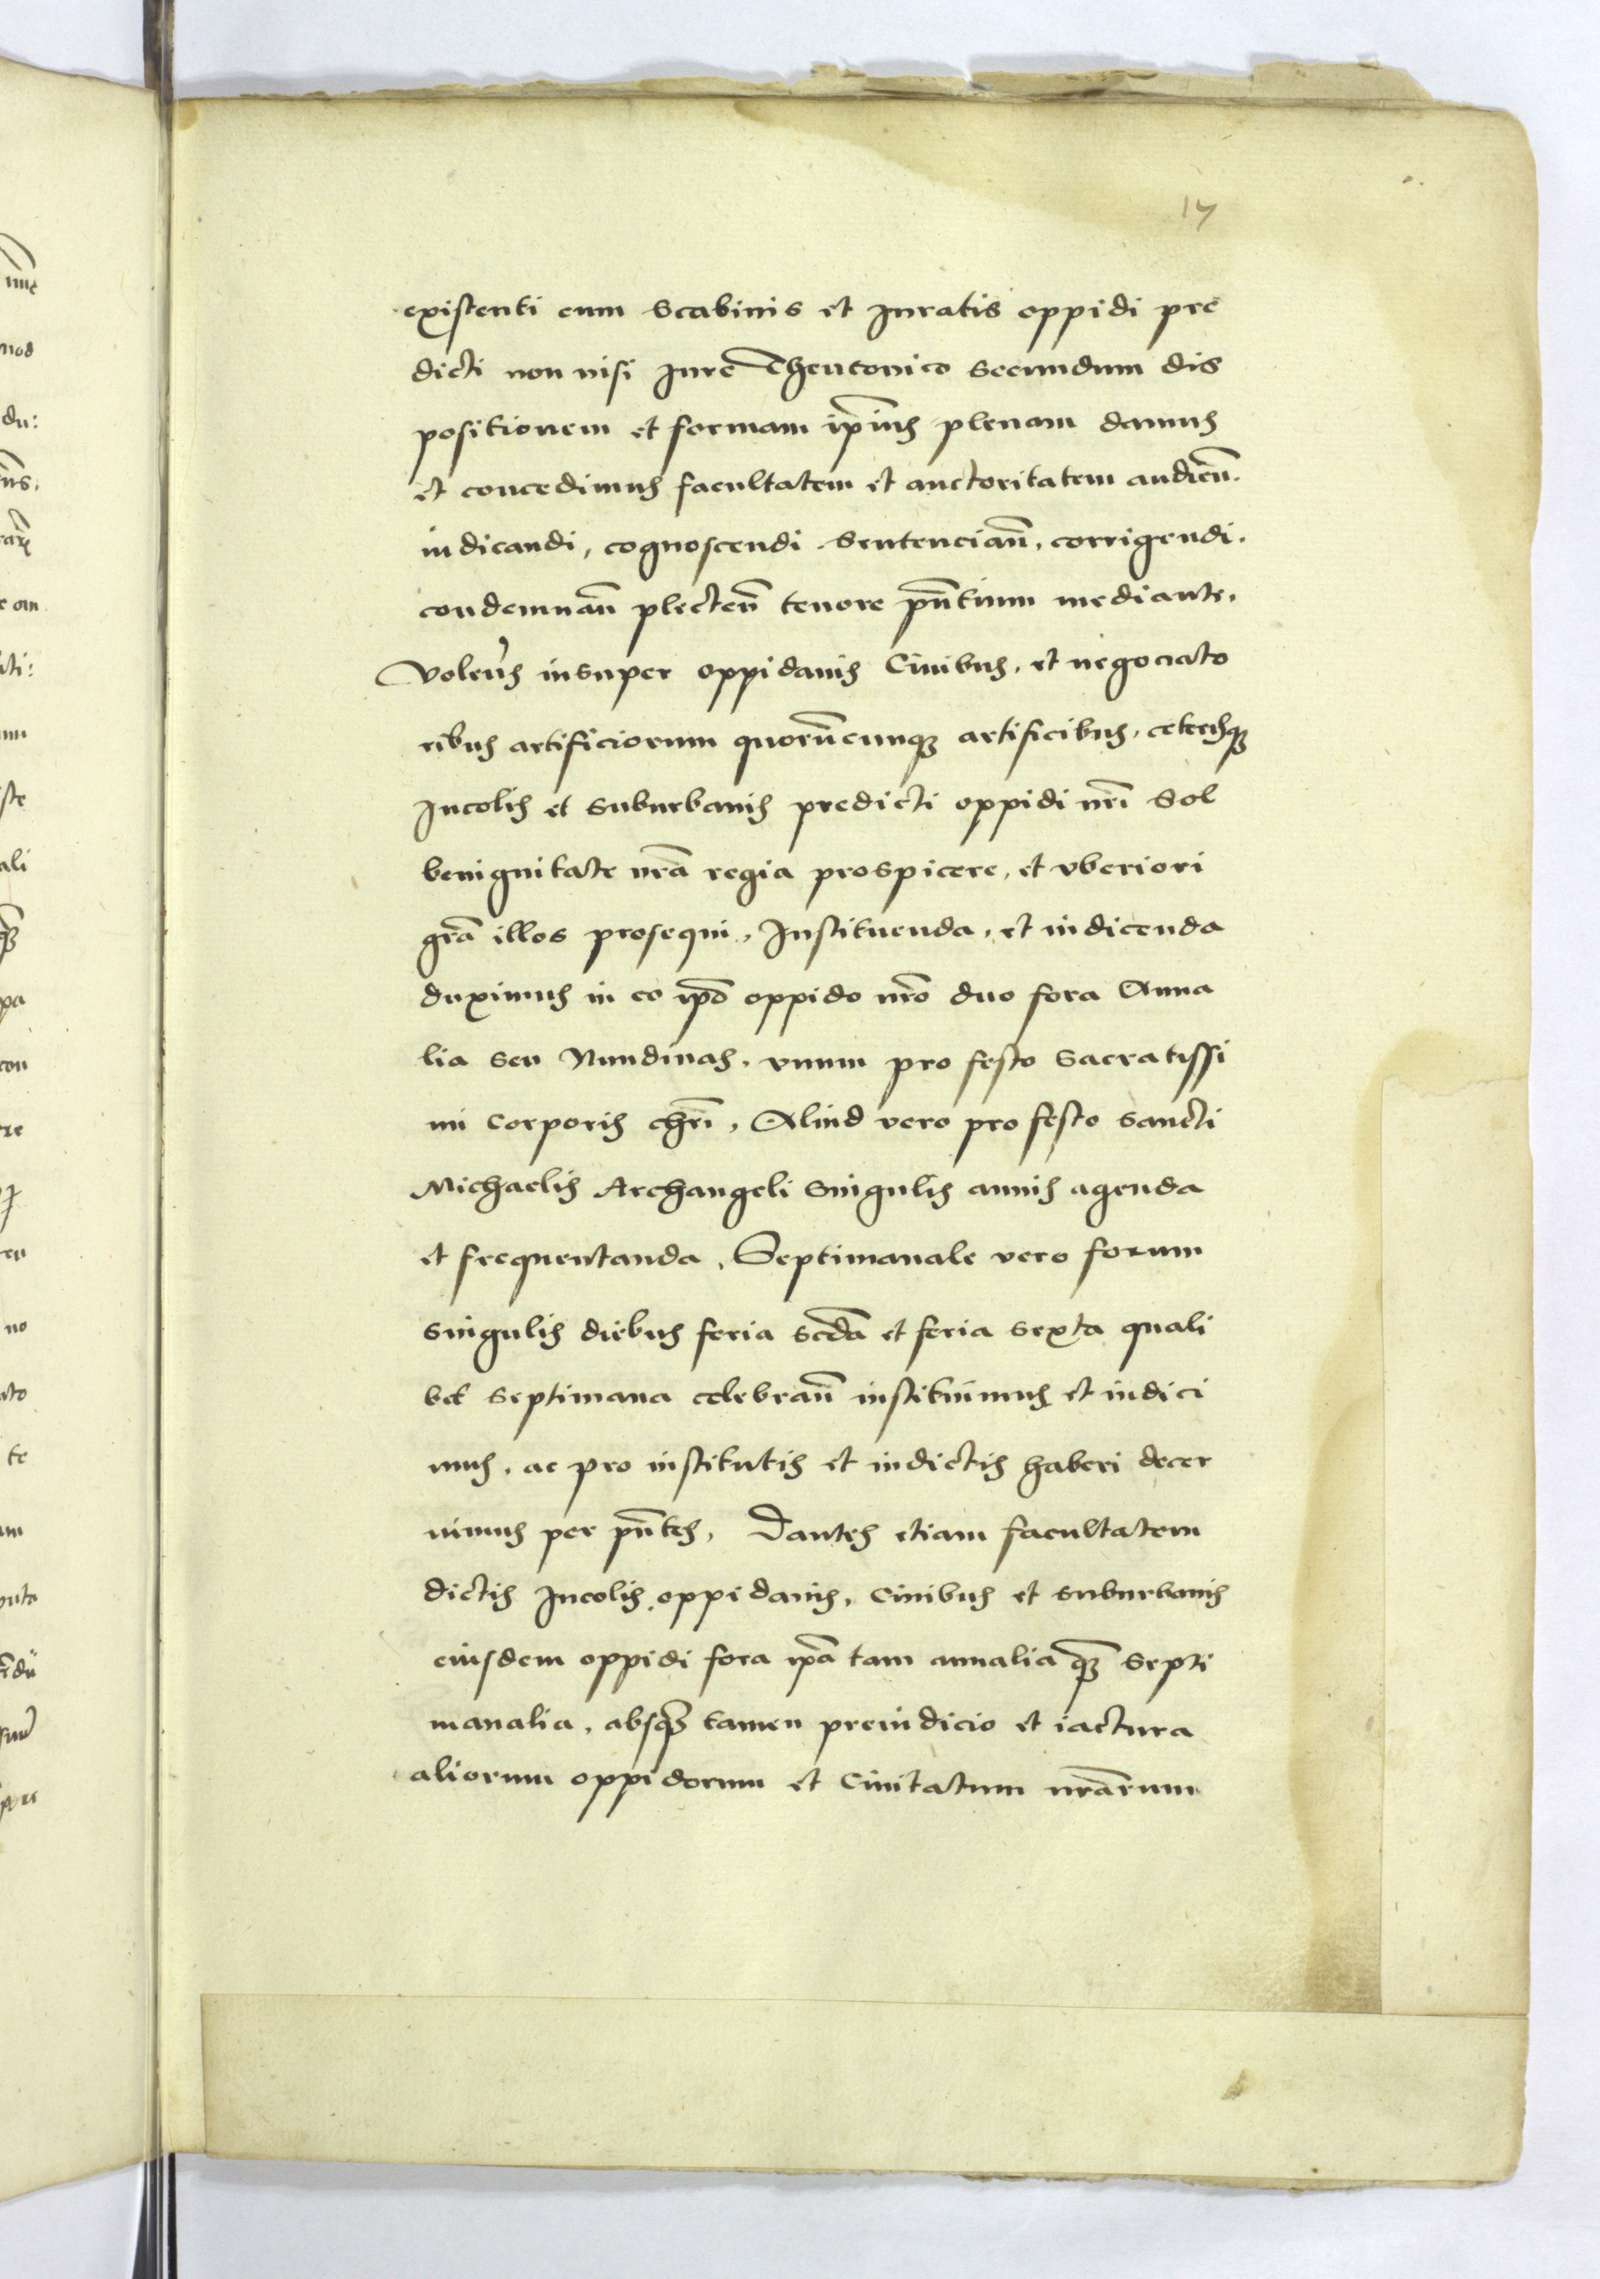 17
existenti cum Scabinis et Juratis oppidi pre
dicti non nisi Jure Theutonico Secundum dis
positionem et formam ip̄ius plenam damus
et concedimus facultatem et auctoritatem audien̄.
iudicandi, cognoscendi Sentencian̄, corrigendi.
condemnan̄ plecten̄ tenore pn̄tium mediante.
Volen̄s insuper oppidanis Ciuibus, et negociato
ribus artificiorum quorūcunqꝫ artificibus, ceterisqꝫ
Incolis et Suburbanis predicti oppidi nr̄i Sol
benignitate nr̄a regia prospicere, et vberiori
gr̄a illos prosequi, Instituenda, et indicenda
duximus in eo ip̄o oppido nr̄o duo fora Annа
lia seu Nundinas, vnum pro festo Sacratissi
mi Corporis chrī, Aliud vero pro festo Sancti
Michaelis Archangeli Singulis annis agenda
et frequentanda, Septimanale vero forum
Singulis diebus feria scd̄a et feria sexta quali
bet septimana celebran̄ instituimus et indici
mus, ac pro institutis et indictis haberi decer
nimus per pn̄tes, Dantes etiam facultatem
dictis Incolis, oppidanis, Ciuibus et Suburbanis
eiusdem oppidi fora ip̄a tam annalia qꝫ̄ Septi
manalia, absqꝫ tamen preiudicio et iactura
aliorum oppidorum et Ciuitatum nr̄arum